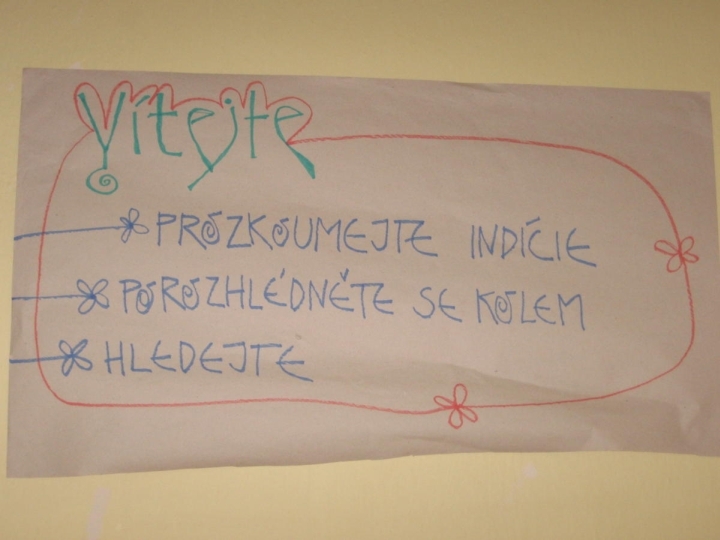 Vítejte
PROZKOUMEJTE INDÍCIE
POROZHLÉDNĚTE SE KOLEM
HLEDEJTE